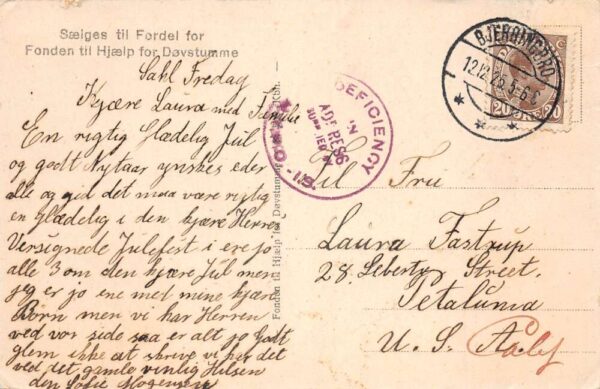 Sælges til Fordel for
Fonden til Hjælp for Døvstumme
Sahl Fredag
Kjære Laura med Familie
En rigtig Glædelig Jul
og godt Nytaar ynskes eder
alle og gid det maa være rigtig
en glædelig i den kjære Herren
Versignede Julefest i er jo
alle 3 om den kjære Jul men
jeg er jo ene med mine kjære
Børn men vi har Herren
ved vor side saa er alt jo Godt
glem ikke at skrive vi har det
ved det gamle vinlig Hilsen
den Sofie Mogensen
Fonden til Hjælp for Døvstumme
DEFICIENCY
IN
ADDRESS
SUPPLIED
BJERRINGBRO
12.12.25.5-6 E
20 ØRE 20
Til Fru
Laura Fastrup
28. Leberty Street.
Petaluma
U. S. A.
Calif